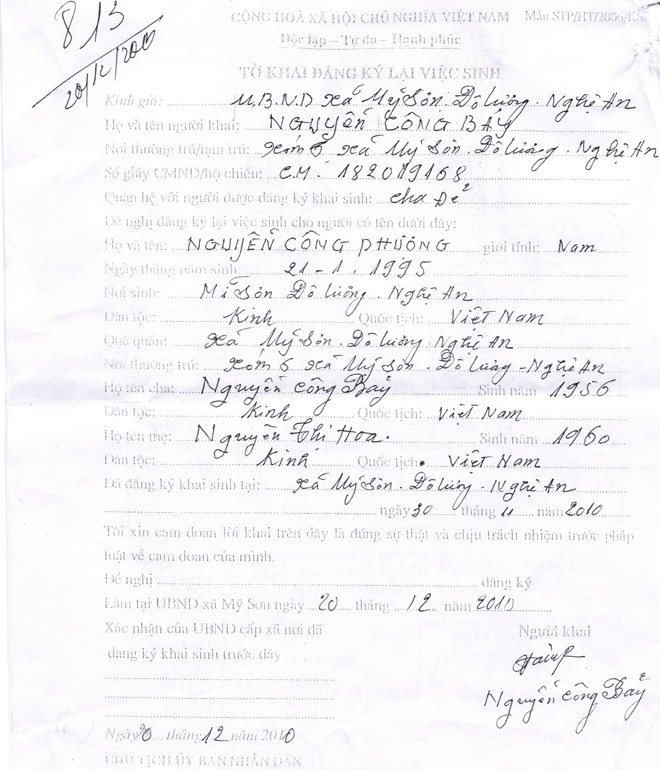 813
20/12/2010
CỘNG HOÀ XÃ HỘI CHỦ NGHĨA VIỆT NAM Mẫu STP/HT/2006/KS.
Độc lập – Tự do – Hạnh phúc
TỜ KHAI ĐĂNG KÝ LẠI VIỆC SINH
Kính gửi: U.B.N.D xã Mỹ Sơn. Đô lương. Nghệ An
Họ và tên người khai: NGUYỄN CÔNG BẢY
Nơi thường trú/tạm trú: xóm 5 xã Mỹ Sơn. Đô lương. Nghệ An
Số giấy CMND/hộ chiếu: C.M. 182019168
Quan hệ với người được đăng ký khai sinh: cha Đẻ
Đề nghị đăng ký lại việc sinh cho người có tên dưới đây:
Họ và tên: NGUYỄN CÔNG PHƯỢNG giới tính: Nam
Ngày tháng năm sinh: 21-1.1995
Nơi sinh: Mĩ Sơn Đô lương. Nghệ An
Dân tộc: Kinh Quốc tịch: Việt Nam
Quê quán: xã Mỹ Sơn. Đô lương. Nghệ An
Nơi thường trú: xóm 5 xã Mỹ Sơn. Đô lương - Nghệ An
Họ tên cha: Nguyễn Công Bảy Sinh năm 1956
Dân tộc: Kinh Quốc tịch: Việt Nam
Họ tên mẹ: Nguyễn Thị Hoa. Sinh năm 1960
Dân tộc: Kinh Quốc tịch: Việt Nam
Đã đăng ký khai sinh tại: xã Mỹ Sơn. Đô lương. Nghệ An
ngày 30 tháng 11 năm 2010
Tôi xin cam đoan lời khai trên đây là đúng sự thật và chịu trách nhiệm trước pháp
luật về cam đoan của mình.
Đề nghị đăng ký
Làm tại UBND xã Mỹ Sơn ngày 20 tháng 12 năm 2010
Xác nhận của UBND cấp xã nơi đã Người khai
đăng ký khai sinh trước đây
Nguyễn Công Bảy
Ngày 20 tháng 12 năm 2010
CHỦ TỊCH ỦY BAN NHÂN DÂN